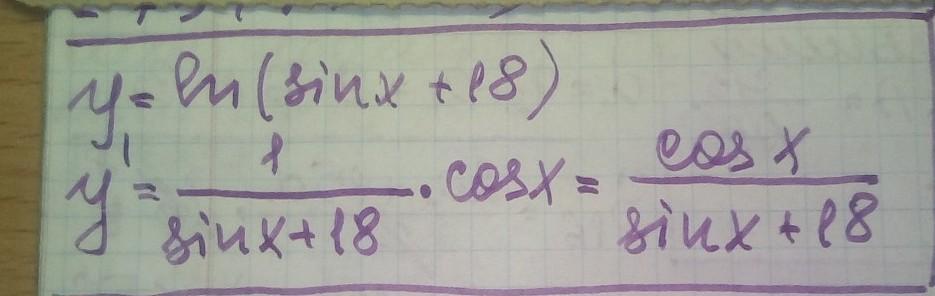 y = ln(sinx + 18)
y' = 1/(sinx + 18) · cosx = cosx/(sinx + 18)